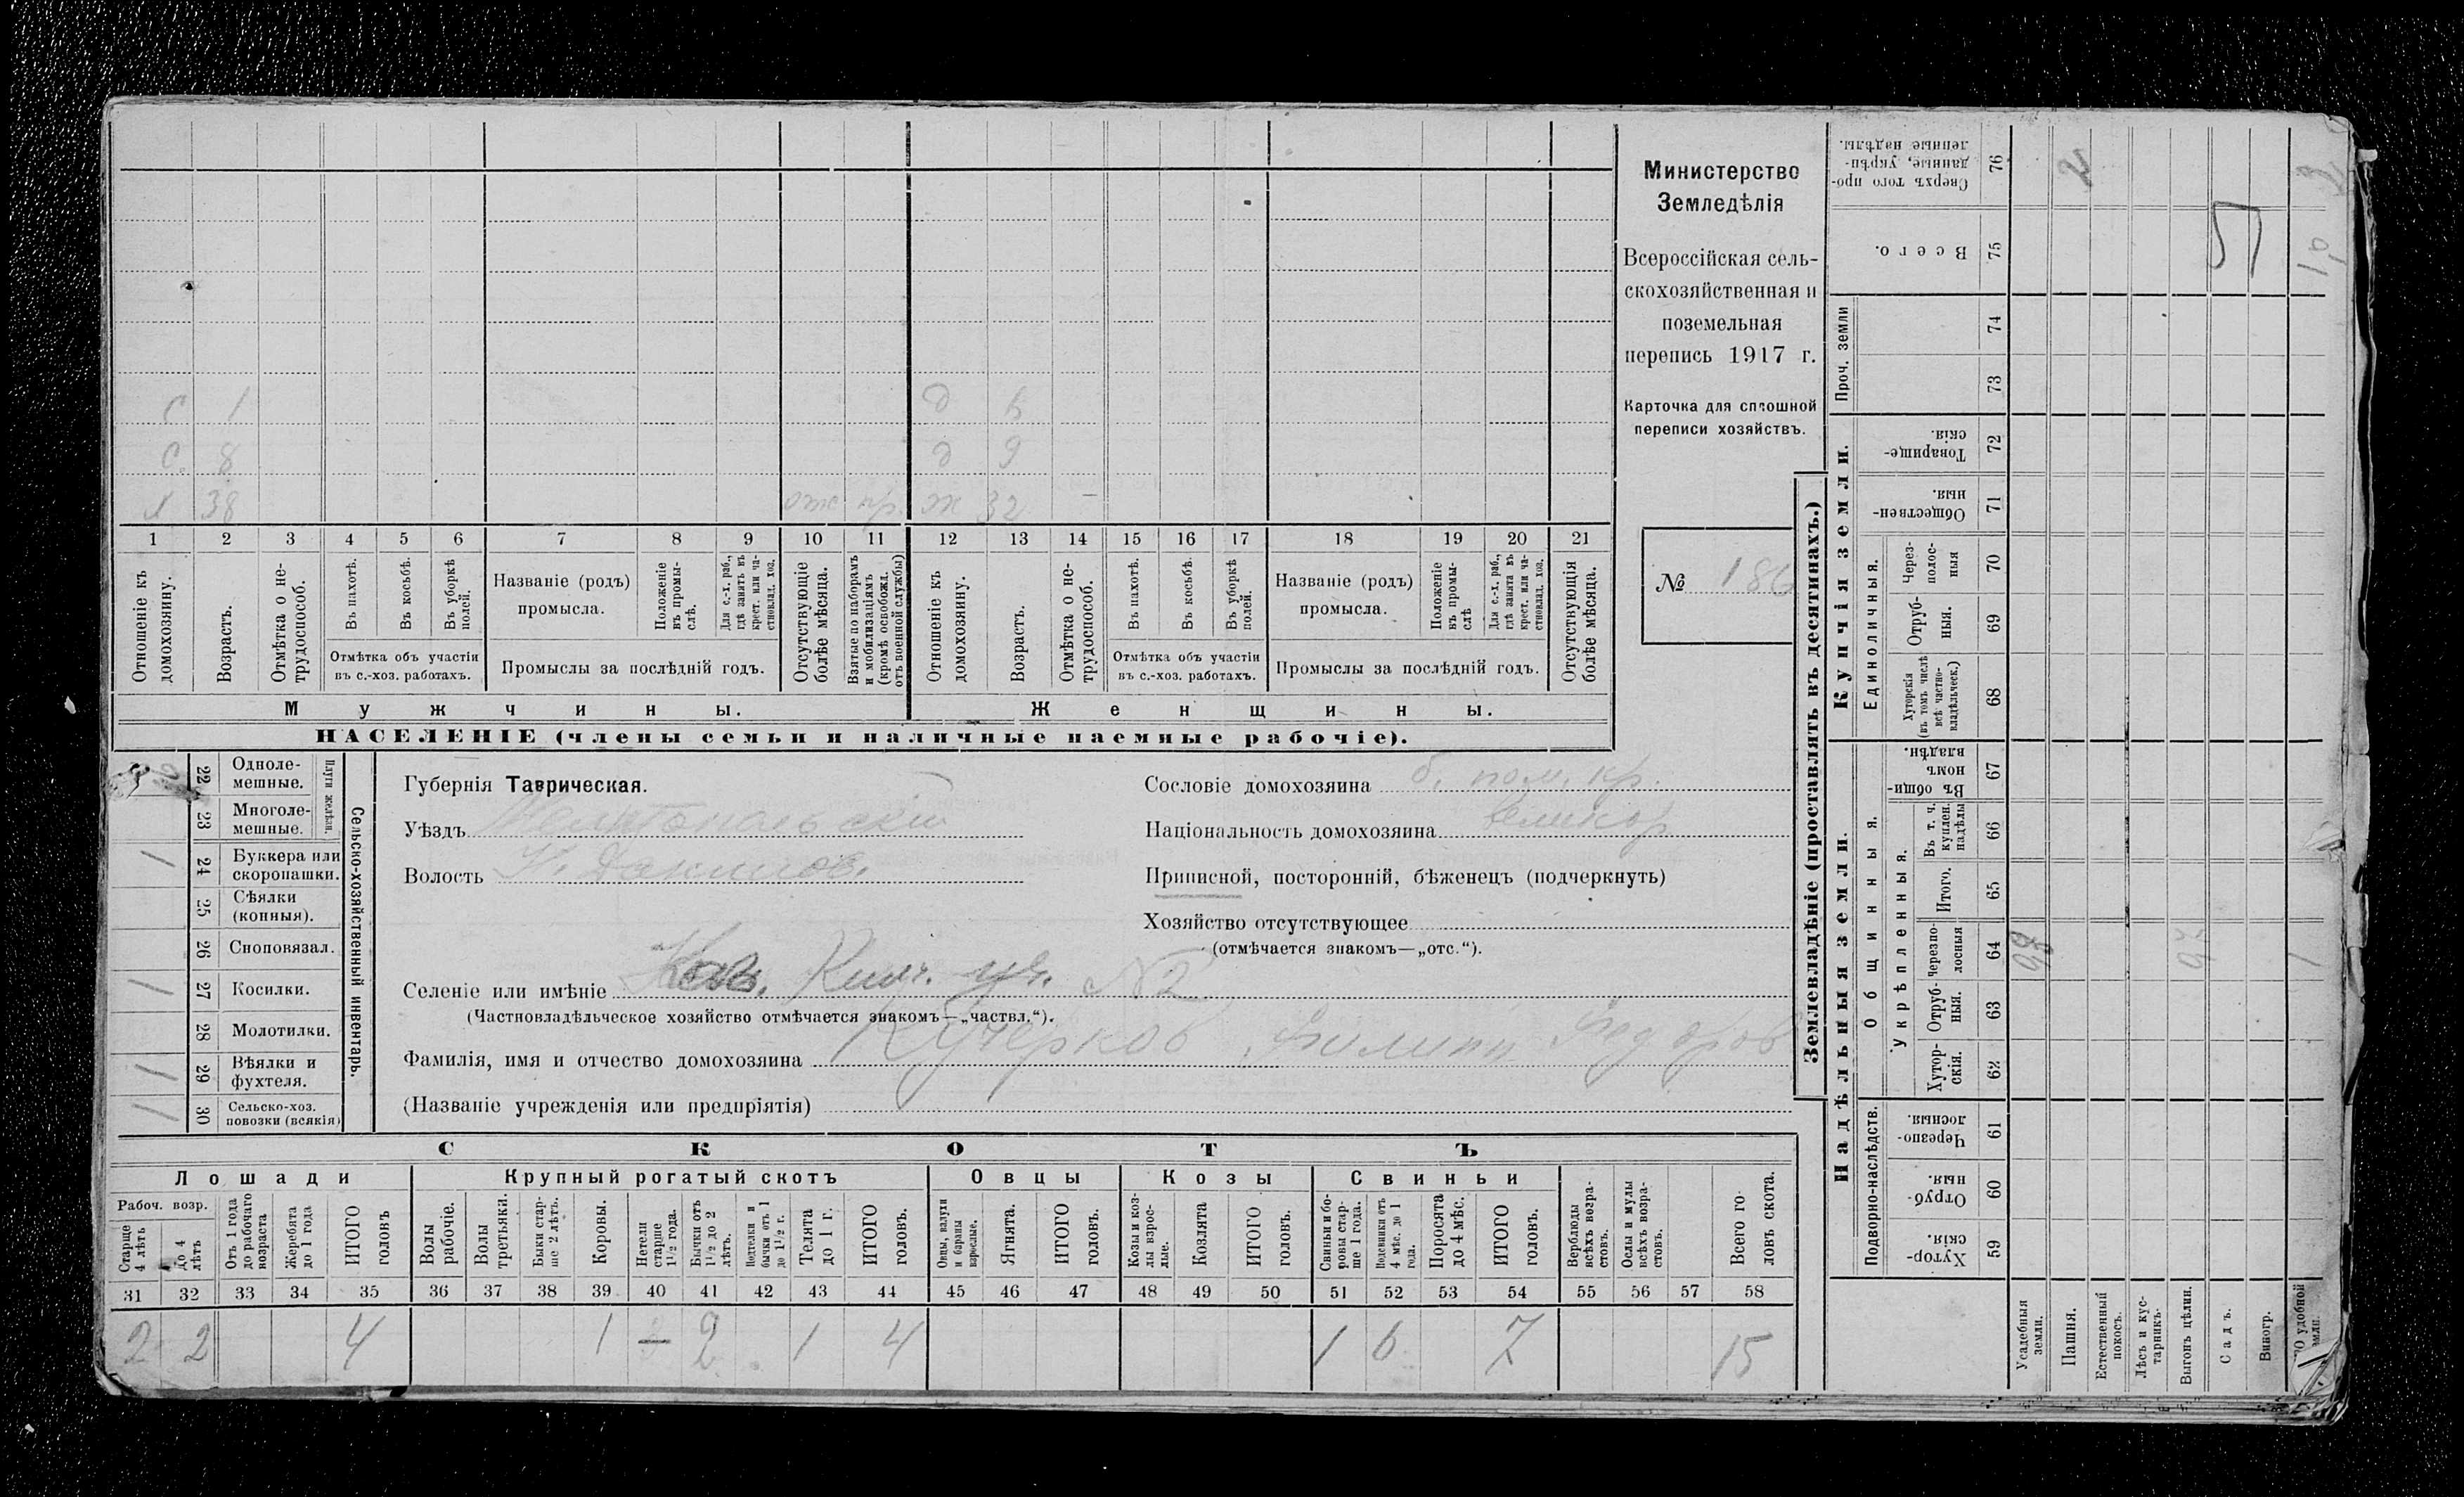 Министерство
Земледѣлія
Всероссійская сель-
скохозяйственная и
поземельная
перепись 1917 г.
Карточка для сплошной
переписи хозяйствъ.
№ 186
С 1 д
С. 8 д 9
Х 38 отс пр. ж 32 —
1 2 3 4 5 6 7 8 9 10 11 12 13 14 15 16 17 18 19 20 21
Отношеніе къ домохозяину.
Возрастъ.
Отмѣтка о не-трудоспособ.
Въ пахотѣ.
Въ косьбѣ.
Въ уборкѣ полей.
Отмѣтка объ участіи
въ с.-хоз. работахъ.
Названіе (родъ)
промысла.
Положеніе въ промы-слѣ.
Для с.-х. раб., гдѣ занятъ въ крест. или ча-стновлад. хоз.
Промыслы за послѣдній годъ.
Отсутствующіе болѣе мѣсяца.
Взятые по наборамъ и мобилизаціямъ (кромѣ освобожд. отъ военной службы)
Отношеніе къ домохозяину.
Возрастъ.
Отмѣтка о не-трудоспособ.
Въ пахотѣ.
Въ косьбѣ.
Въ уборкѣ полей.
Отмѣтка объ участіи
въ с.-хоз. работахъ.
Названіе (родъ)
промысла.
Положеніе въ промы-слѣ
Для с.-х. раб., гдѣ занята въ крест. или ча-стновлад. хоз.
Промыслы за послѣдній годъ.
Отсутствующія болѣе мѣсяца.
Мужчины.
Женщины.
НАСЕЛЕНІЕ (члены семьи и наличные наемные рабочіе).
Сельско-хозяйственный инвентарь.
Плуги желѣзн.
22 Одноле-мешные.
23 Многоле-мешные.
1 24 Буккера или скоропашки.
25 Сѣялки (конныя).
26 Сноповязал.
1 27 Косилки.
28 Молотилки.
1 29 Вѣялки и фухтеля.
1 30 Сельско-хоз. повозки (всякія)
Губернія Таврическая.
Уѣздъ Мелитопольскій
Волость
Сословіе домохозяина б. пом. кр.
Національность домохозяина великор
Приписной, посторонній, бѣженецъ (подчеркнуть)
Хозяйство отсутствующее
(отмѣчается знакомъ—„отс.“).
Селеніе или имѣніе уч. №2
(Частновладѣльческое хозяйство отмѣчается знакомъ—„частвл.“).
Фамилія, имя и отчество домохозяина Кучерков Филипп Федоров
(Названіе учрежденія или предпріятія)
СКОТЪ
Лошади
Крупный рогатый скотъ
Овцы
Козы
Свиньи
Рабоч. возр.
Старше 4 лѣтъ
до 4 лѣтъ
Отъ 1 года до рабочаго возраста
Жеребята до 1 года
ИТОГО головъ
Волы рабочіе.
Волы третьяки.
Быки стар-ше 2 лѣтъ.
Коровы.
Нетели старше 1½ года.
Бычки отъ 1½ до 2 лѣтъ.
Подтелки и бычки отъ 1 до 1½ г.
Телята до 1 г.
ИТОГО головъ.
Овцы, валухи и бараны взрослые.
Ягнята.
ИТОГО головъ.
Козы и коз-лы взрос-лые.
Козлята
ИТОГО головъ.
Свиньи и бо-ровы стар-ше 1 года.
Подсвинки отъ 4 мѣс. до 1 года.
Поросята до 4 мѣс.
ИТОГО головъ.
Верблюды всѣхъ возра-стовъ.
Ослы и мулы всѣхъ возра-стовъ.
Всего го-ловъ скота.
31 32 33 34 35 36 37 38 39 40 41 42 43 44 45 46 47 48 49 50 51 52 53 54 55 56 57 58
2 2 4 1 — 2 1 4 1 6 7 15
Землевладѣніе (проставлять въ десятинахъ.)
Надѣльныя земли.
Купчія земли.
Проч. земли
Подворно-наслѣдств.
Общинныя.
Укрѣпленныя.
Единоличныя.
76 Сверхъ того про-данные, укрѣп-ленные надѣлы.
75 Всего.
74
73
72 Товарище-скія.
71 Обществен-ныя.
70 Через-полос-ныя
69 Отруб-ныя.
68 Хуторскія (въ томъ числѣ всѣ частно-владѣльческ.)
67 Въ общин-номъ владѣн.
66 Въ т. ч. куплен. надѣлы
65 Итого.
64 Черезпо-лосныя
63 Отруб-ныя.
62 Хутор-скія.
61 Черезпо-лосныя.
60 Отруб-ныя.
59 Хутор-скія.
Усадебныя земли.
Пашня.
Естественный покосъ.
Лѣсъ и кус-тарникъ.
Выгонъ цѣлин.
Садъ.
Виногр.